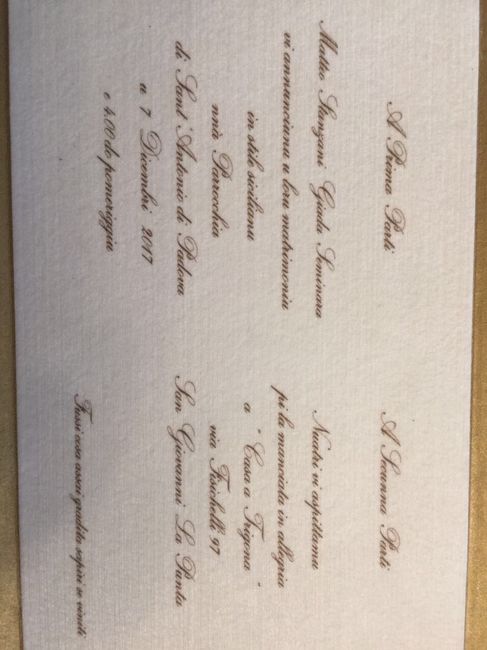 A Prima Parti
Matteo Stanzani Giada Seminara
vi annuncianu u loru matrimoniu
in stili sicilianu
nnà Parocchia
di Sant'Antonio di Padova
u 7 Dicembri 2017
e 4.00 do pomeriggiu
A Secunna Parti
Nuatri vi aspittamu
pi la manciata in allegria
a "Casa a Trigona"
via Fisichelli 97
San Giovanni La Punta
Fussi cosa assai gradita sapiri se viniti